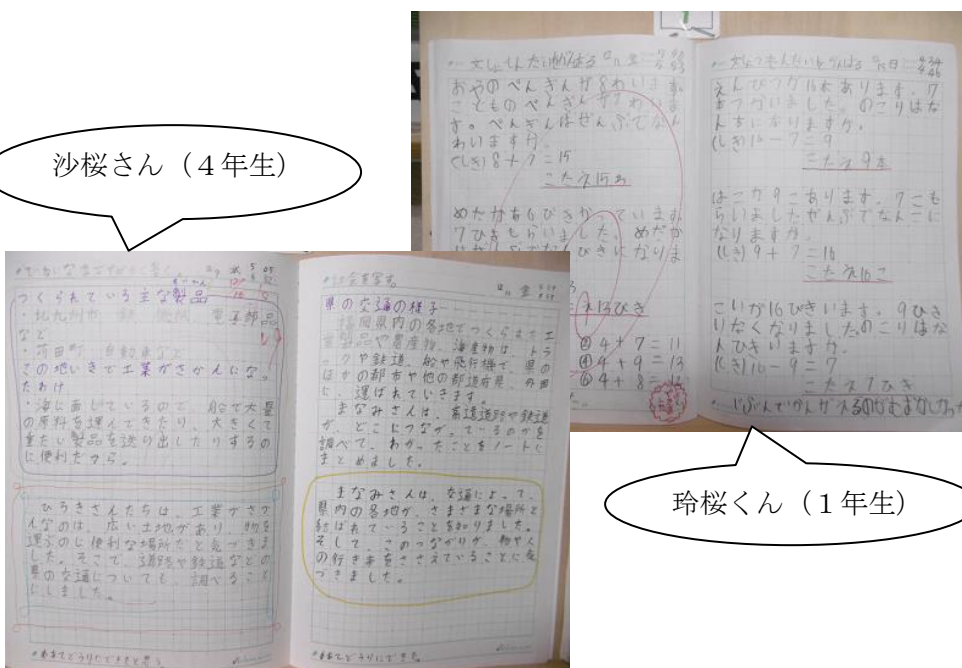 沙桜さん（４年生）
おやのぺんぎんが8わいます。
こどものぺんぎんが7わいま
す。ぺんぎんはぜんぶでなん
わいますか。
(しき)8+7=15
こたえ15わ
7ひきもらいました。めだか
13ひき
② 4+7=11
④ 4+9=13
⑥ 4+8=12
えんぴつが16本あります。7
本つかいました。のこりはな
ん本になりますか。
(しき)16-7=9
こたえ9本
はこが9こあります。7こも
らいました。ぜんぶでなんこに
なりますか。
(しき)9+7=16
こたえ16こ
こいが16ぴきいます。9ひき
いなくなりました。のこりはな
んひきいますか。
(しき)16-9=7
こたえ7ひき
じぶんでかんがえるのがむずかしかった
玲桜くん（１年生）
つくられている主な製品
・北九州市 鉄 電子部品
など
・苅田町 自動車など
この地いきで工業がさかんになっ
たわけ
・海に面しているので、船で大量
の原料を運んできたり、大きくて
重たい製品を送り出したりするの
に便利だから。
ひろきさんたちは、工業がさか
んなのは、広い土地があり、物を
運ぶのに便利な場所だと気づきま
した。そこで、道路や鉄道などの
県の交通についても、調べること
にしました。
県の交通の様子
福岡県内の各地でつくられた工
業製品や農産物、海産物は、トラ
ックや鉄道、船や飛行機で、県の
ほかの都市や他の都道府県、外国
に、運ばれていきます。
まなみさんは、高速道路や鉄道
が、どこにつながっているのかを
調べて、わかったことをノートに
まとめました。
まなみさんは、交通によって、
県内の各地が、さまざまな場所と
結ばれていることを知りました。
そして、このつながりが、物や人
の行き来をささえていることに気
づきました。